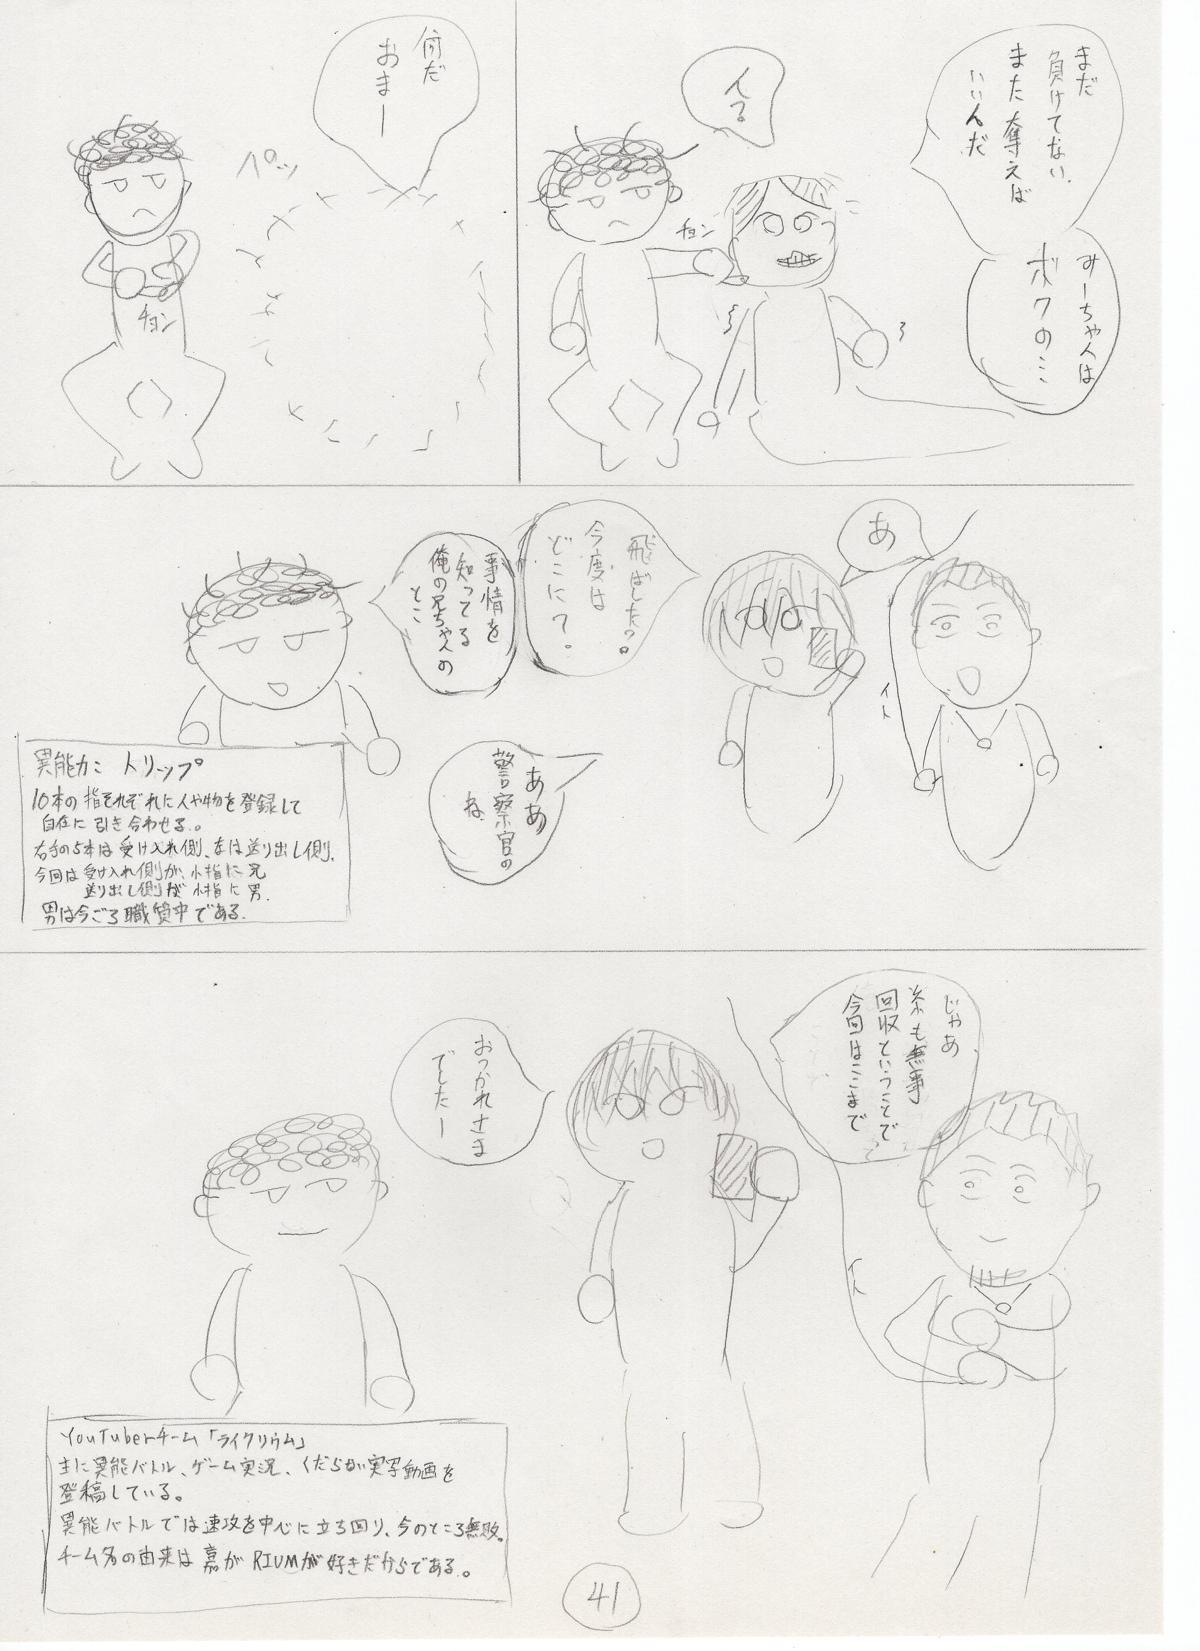 まだ
負けてない.
また奪えば
いいんだ
みーちゃんは
ボクの…
ん?
チョン
何だ
おまー
パッ
チョン
あ
イト
飛ばした?
今度は
どこに?
事情を
知ってる
俺の兄ちゃんの
とこ
ああ
警察官の
ね
異能力: トリップ
10本の指それぞれに人や物を登録して
自在に引き合わせる。
右手の5本は受け入れ側、左は送り出し側.
今回は受け入れ側が、小指に兄
送り出し側が小指に男.
男は今ごろ職質中である.
じゃあ
糸も無事
回収ということで
今回はここまで
イト
おつかれさま
でしたー
YouTuberチーム「ライクリウム」
主に異能バトル、ゲーム実況、くだらない実写動画を
登稿している。
異能バトルでは速攻を中心に立ち回り、今のところ無敗。
チーム名の由来は嘉がRIUMが好きだからである。
41